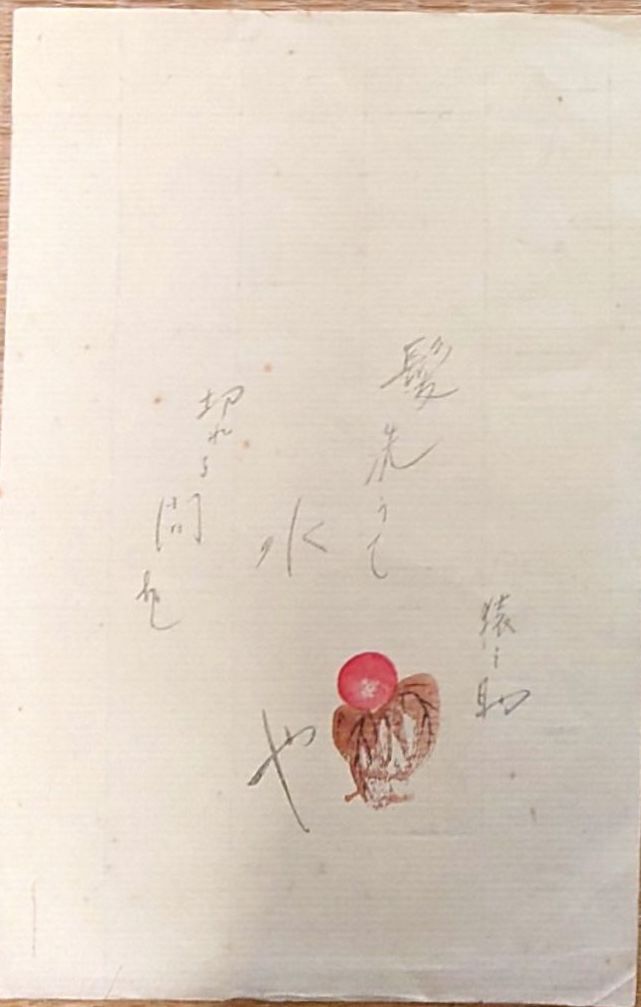 猿之助
髪洗うて
水
や
切れる
間